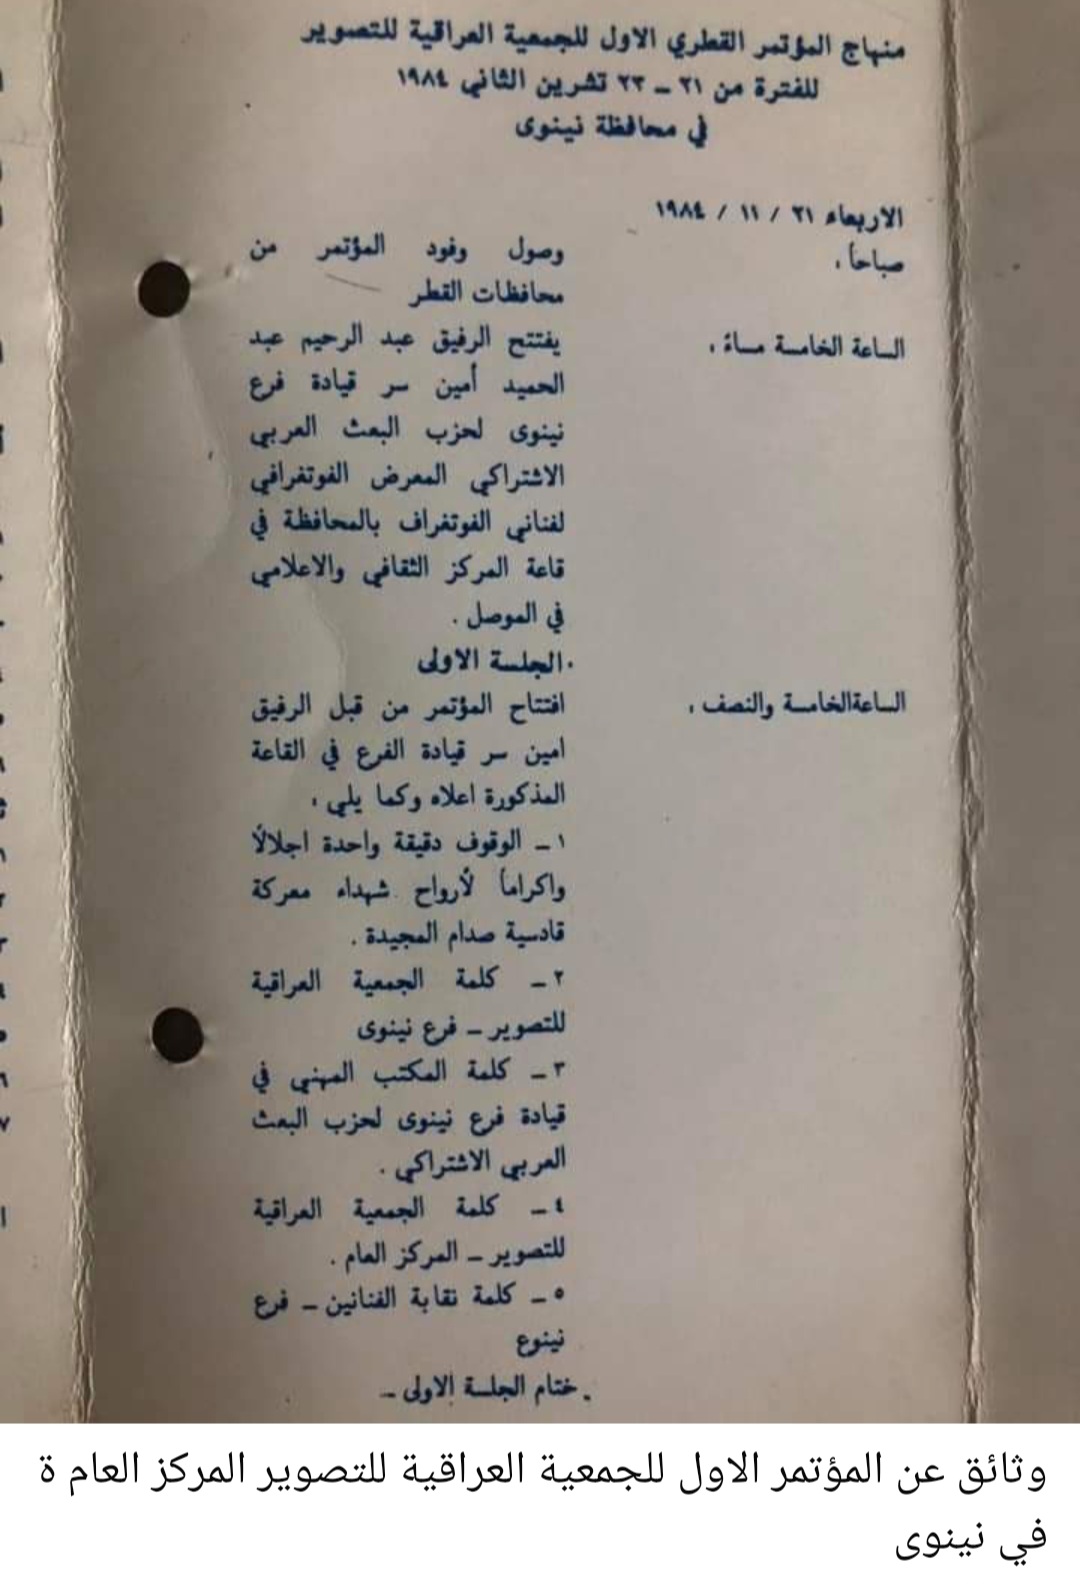 منهاج المؤتمر القطري الاول للجمعية العراقية للتصوير
للفترة من ٢١ – ٢٣ تشرين الثاني ١٩٨٤
في محافظة نينوى
الاربعاء ٢١ / ١١ / ١٩٨٤
صباحاً ،
وصول وفود المؤتمر من
محافظات القطر
الساعة الخامسة مساءً ،
يفتتح الرفيق عبد الرحيم عبد
الحميد أمين سر قيادة فرع
نينوى لحزب البعث العربي
الاشتراكي المعرض الفوتغرافي
لفناني الفوتغراف بالمحافظة في
قاعة المركز الثقافي والاعلامي
في الموصل .
الجلسة الاولى
الساعةالخامسة والنصف ،
افتتاح المؤتمر من قبل الرفيق
امين سر قيادة الفرع في القاعة
المذكورة اعلاه وكما يلي ،
١ – الوقوف دقيقة واحدة اجلالاً
واكراماً لأرواح شهداء معركة
قادسية صدام المجيدة .
٢ – كلمة الجمعية العراقية
للتصوير – فرع نينوى
٣ – كلمة المكتب المهني في
قيادة فرع نينوى لحزب البعث
العربي الاشتراكي .
٤ – كلمة الجمعية العراقية
للتصوير – المركز العام .
٥ – كلمة نقابة الفنانين – فرع
نينوع
ختام الجلسة الاولى –
وثائق عن المؤتمر الاول للجمعية العراقية للتصوير المركز العام ة
في نينوى